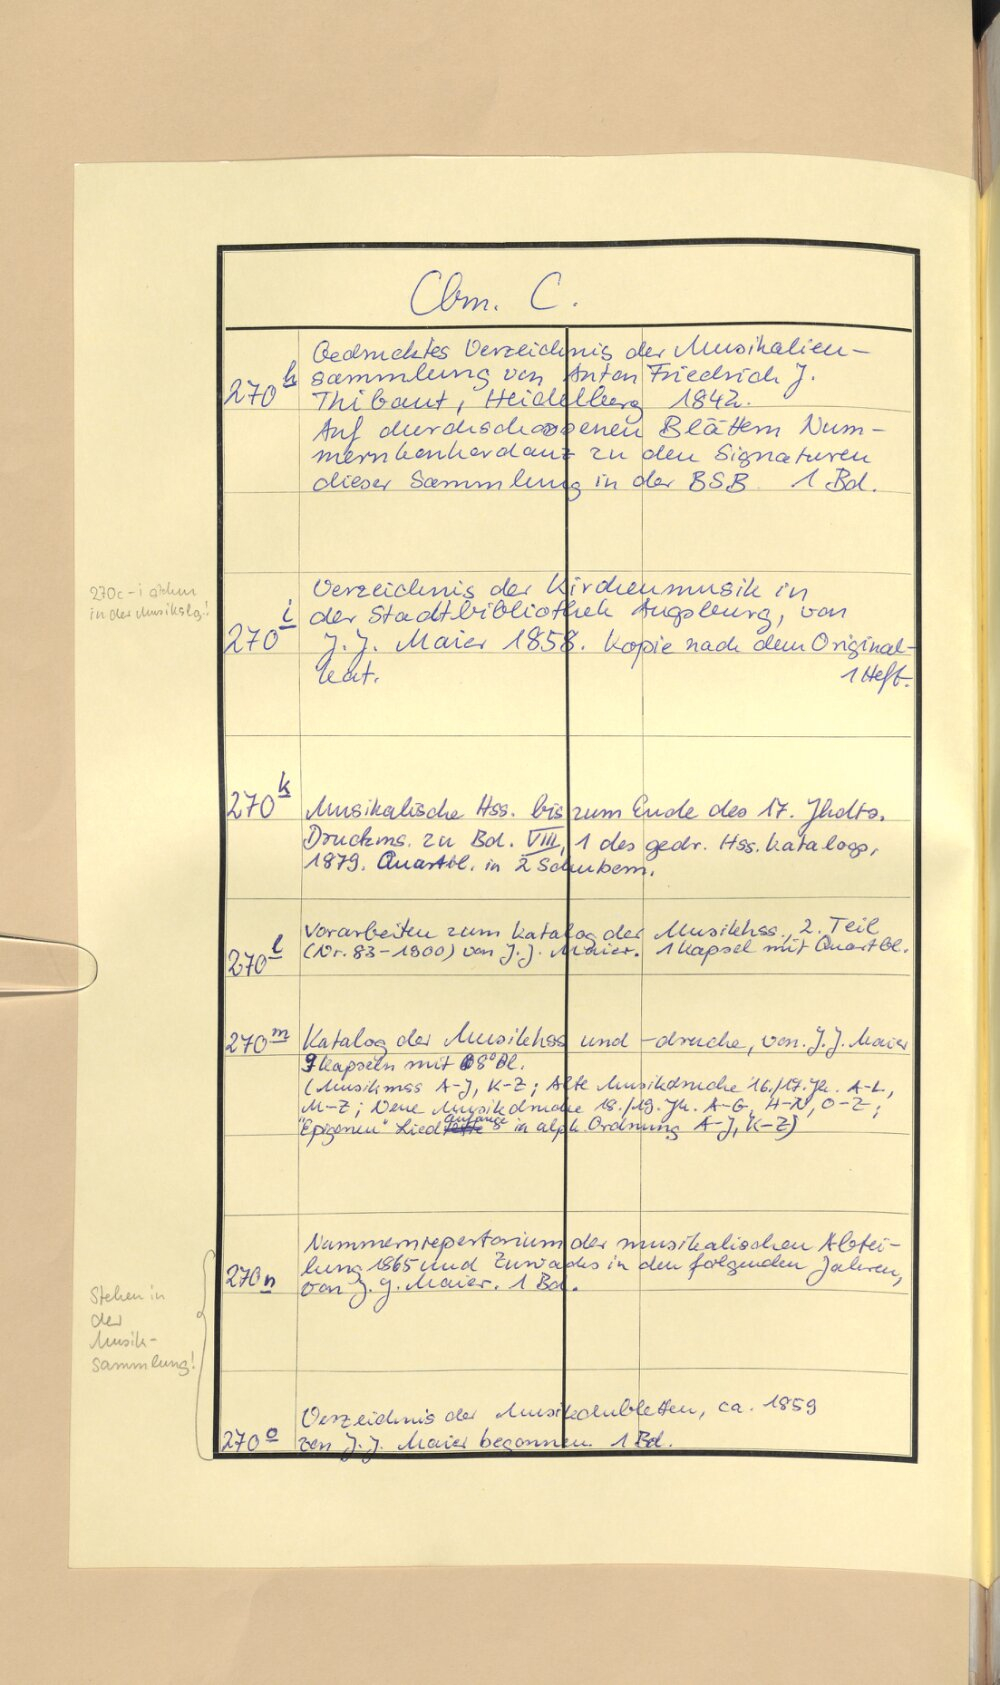 Cbm. C.
270h Gedrucktes Verzeichnis der Musikalien-
sammlung von Anton Friedrich J.
Thibaut, Heidelberg 1842.
Auf durchschossenen Blättern Num-
mernkonkordanz zu den Signaturen
dieser Sammlung in der BSB 1 Bd.
270c-i stehen
in der Musikslg!
270i Verzeichnis der Kirchenmusik in
der Stadtbibliothek Augsburg, von
J. J. Maier 1858. Kopie nach dem Original-
kat. 1 Heft.
270k Musikalische Hss. bis zum Ende des 17. Jhdts.
Druckms. zu Bd. VIII, 1 des gedr. Hss. Katalogs,
1879. Quartbl. in 2 Schubern.
270l Vorarbeiten zum Katalog der Musikhss., 2. Teil
(Nr. 83-1900) von J. J. Maier. 1 Kapsel mit Quartbl.
270m Katalog der Musikhss und -drucke, von J. J. Maier
9 Kapseln mit 8° Bl.
(Musikmss A-J, K-Z; Alte Musikdrucke 16./17. Jh. A-L,
M-Z; Neue Musikdrucke 18./19. Jh. A-G, H-N, O-Z;
"Epigonen" Liedanfänge in alph. Ordnung A-J, K-Z)
270n Nummernrepertorium der musikalischen Abtei-
lung 1865 und Zuwachs in den folgenden Jahren,
von J. J. Maier. 1 Bd.
Stehen in
der
Musik-
sammlung!
270o Verzeichnis der Musikdubletten, ca. 1859
von J. J. Maier begonnen. 1 Bd.